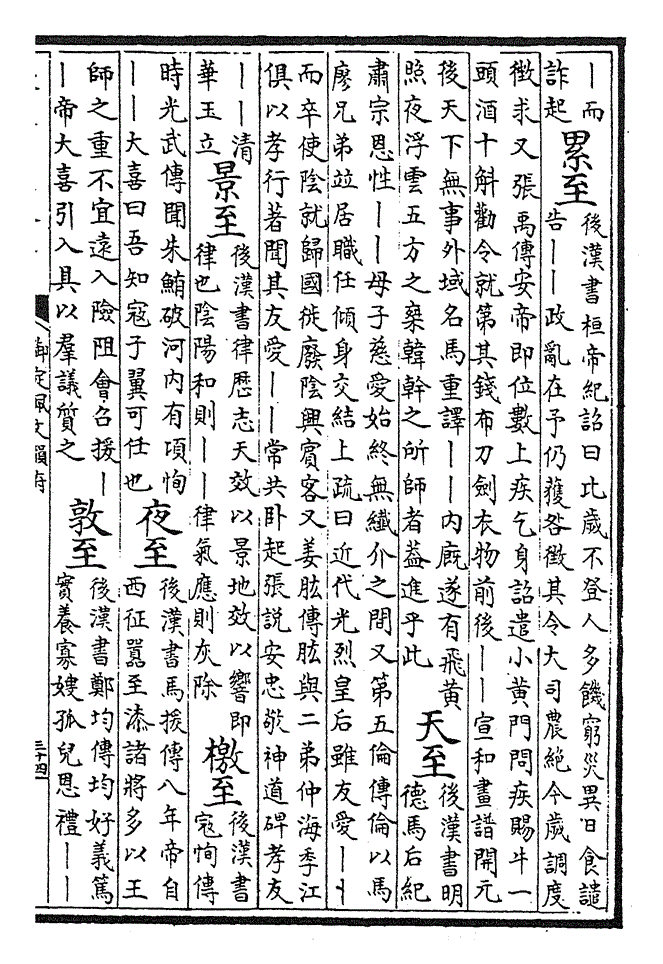 ｜而
詐起
累至
後漢書桓帝紀詔曰比歲不登人多饑窮災異日食譴
告｜｜政亂在予仍獲咎徵其令大司農絕今歲調度
徵求又張禹傳安帝即位數上疾乞身詔遣小黃門問疾賜牛一
頭酒十斛勸令就第其錢布刀劍衣物前後｜｜宣和畫譜開元
後天下無事外域名馬重譯｜｜内廐遂有飛黃
照夜浮雲五方之椉韓幹之所師者葢進乎此
天至
後漢書明
德馬后紀
肅宗恩性｜｜母子慈愛始終無纖介之間又第五倫傳倫以馬
廖兄弟並居職任傾身交結上疏曰近代光烈皇后雖友愛｜｜
而卒使陰就歸國徙廢陰興賓客又姜肱傳肱與二弟仲海季江
俱以孝行著聞其友愛｜｜常共卧起張說安忠敬神道碑孝友
｜｜清
華玉立
景至
後漢書律歷志天效以景地效以響即
律也陰陽和則｜｜律氣應則灰除
檄至
後漢書
寇恂傳
時光武傳聞朱鮪破河内有頃恂
｜｜大喜曰吾知寇子翼可任也
夜至
後漢書馬援傳八年帝自
西征囂至漆諸將多以王
師之重不宜遠入險阻會召援｜
｜帝大喜引入具以羣議質之
敦至
後漢書鄭均傳均好義篤
實養寡嫂孤兒恩禮｜｜
御定佩文韻府
三十四